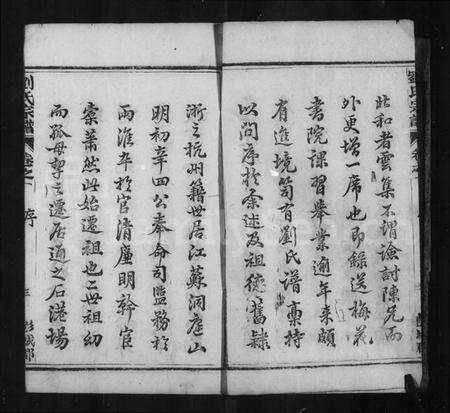 劉氏宗譜
此和者雲集不謂論討陳先而
外更增一席也即錄送梅花
書院課習舉業逾年來頗
有進境笥有劉氏譜稟持
以問序於余述及祖德舊隸
浙之杭州籍世居江蘇洞庭山
明初辛四公奉命司監務於
兩淮卒於官清廉明幹宦
橐蕭然此始遷祖也二世祖幼
而孤母挈之遷居通之石港場
劉氏宗譜
卷之一
序
三
彭城郡